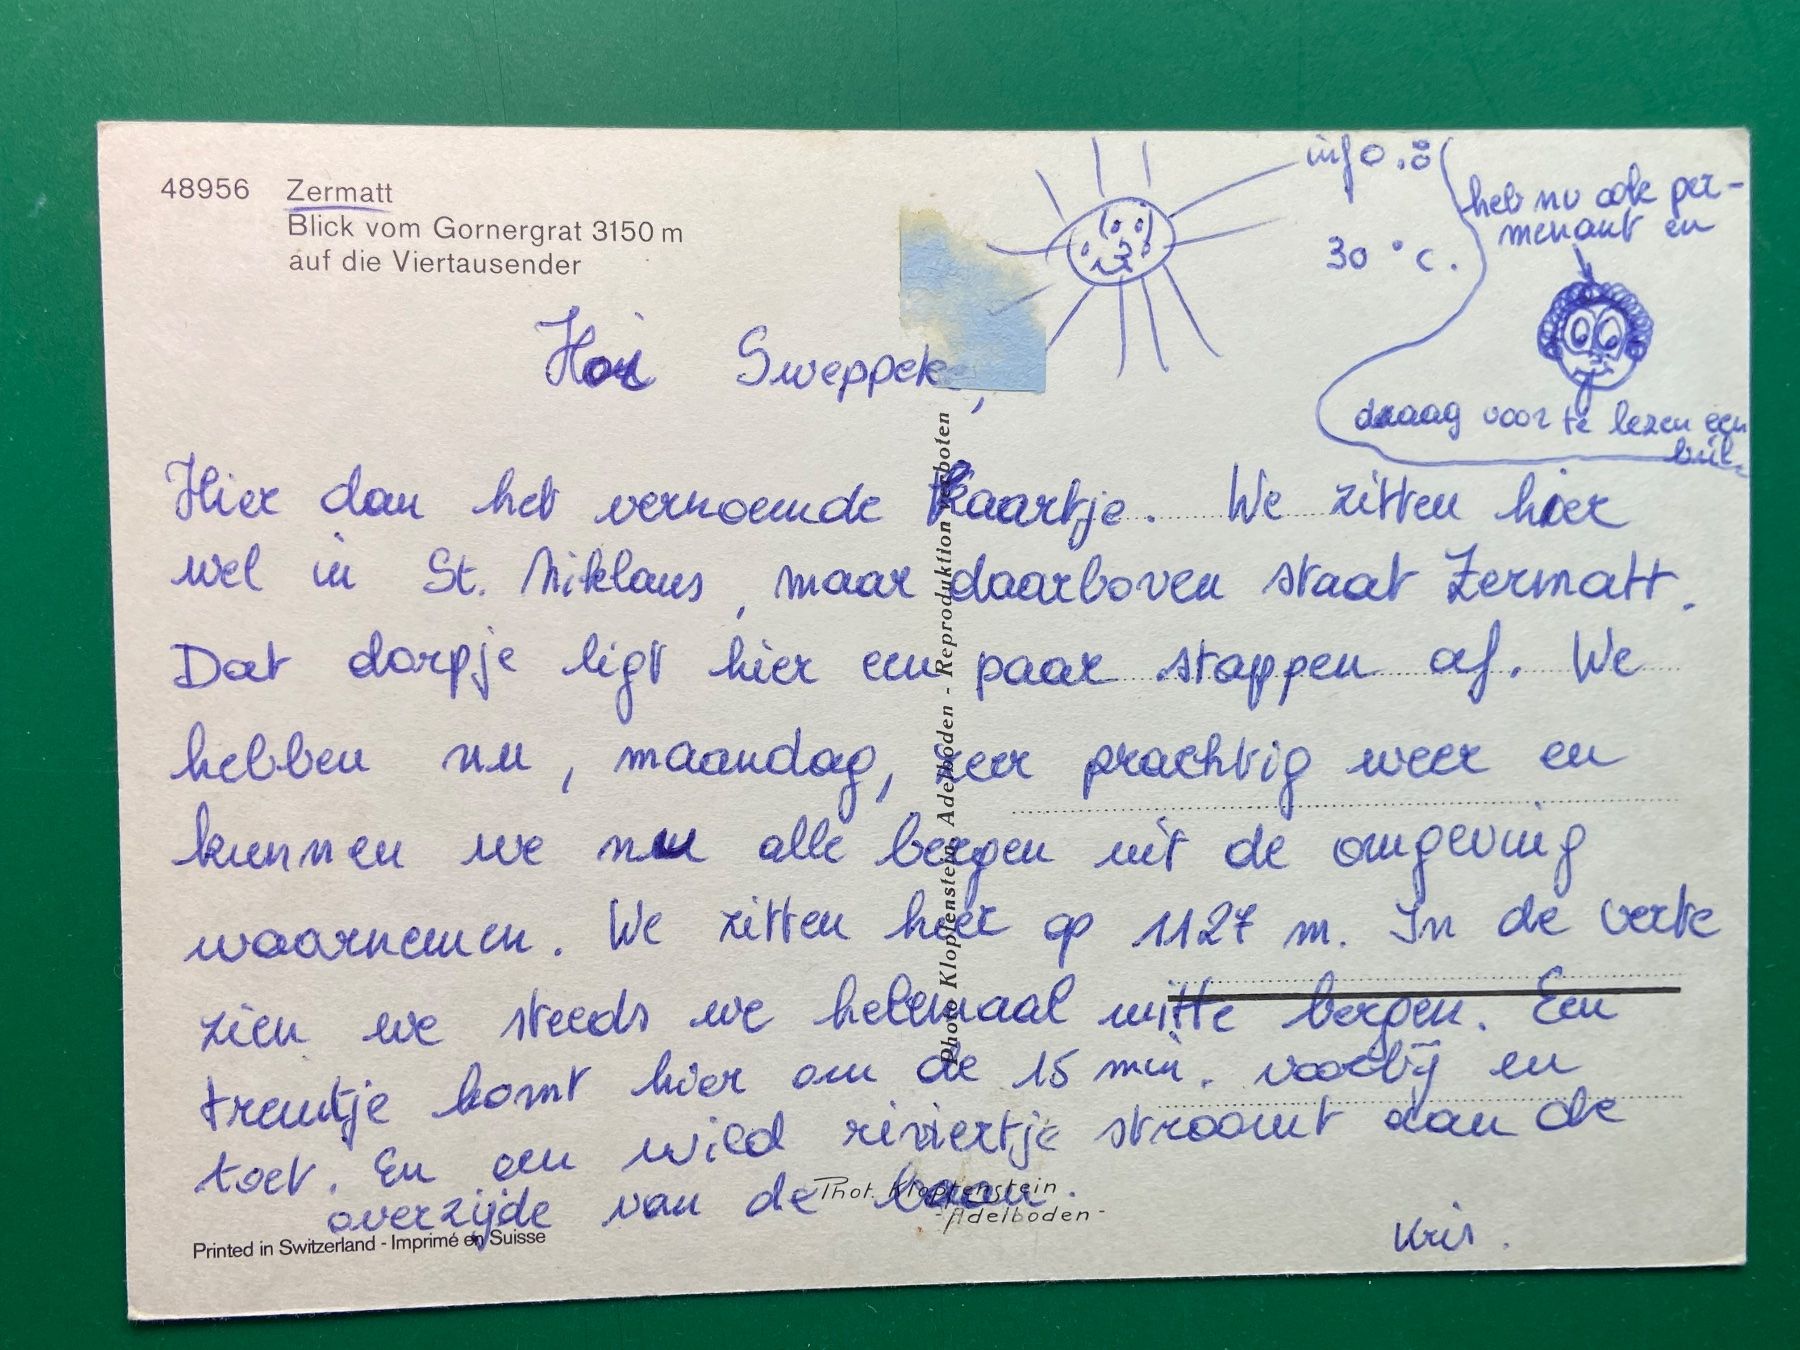 48956 Zermatt
Blick vom Gornergrat 3150 m
auf die Viertausender
info.:
30 °c.
heb nu ook per-
menant en
draag voor te lezen een
bril.
Hoi Sweppek,
Hier dan het vernoemde kaartje. We zitten hier
wel in St. Niklaus, maar daarboven staat Zermatt.
Dat dorpje ligt hier een paar stappen af. We
hebben nu, maandag, zeer prachtig weer en
kunnen we nu alle bergen uit de omgeving
waarnemen. We zitten hier op 1127 m. In de verte
zien we steeds we helemaal witte bergen. Een
treintje komt hier om de 15 min. voorbij en
toet. En een wild riviertje stroomt aan de
overzijde van de baan.
Kris.
Photo Klopfenstein, Adelboden - Reproduktion verboten
Phot. Klopfenstein
- Adelboden -
Printed in Switzerland - Imprimé en Suisse